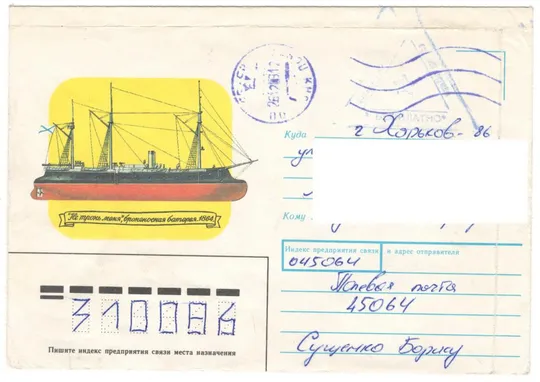 Куда
г Харьков - 86
ул
"Не тронь меня", броненосная батарея. 1864
Кому
Индекс предприятия связи и адрес отправителя
045064
Полевая почта
45064
310086
Пишите индекс предприятия связи места назначения
Сущенко Борису